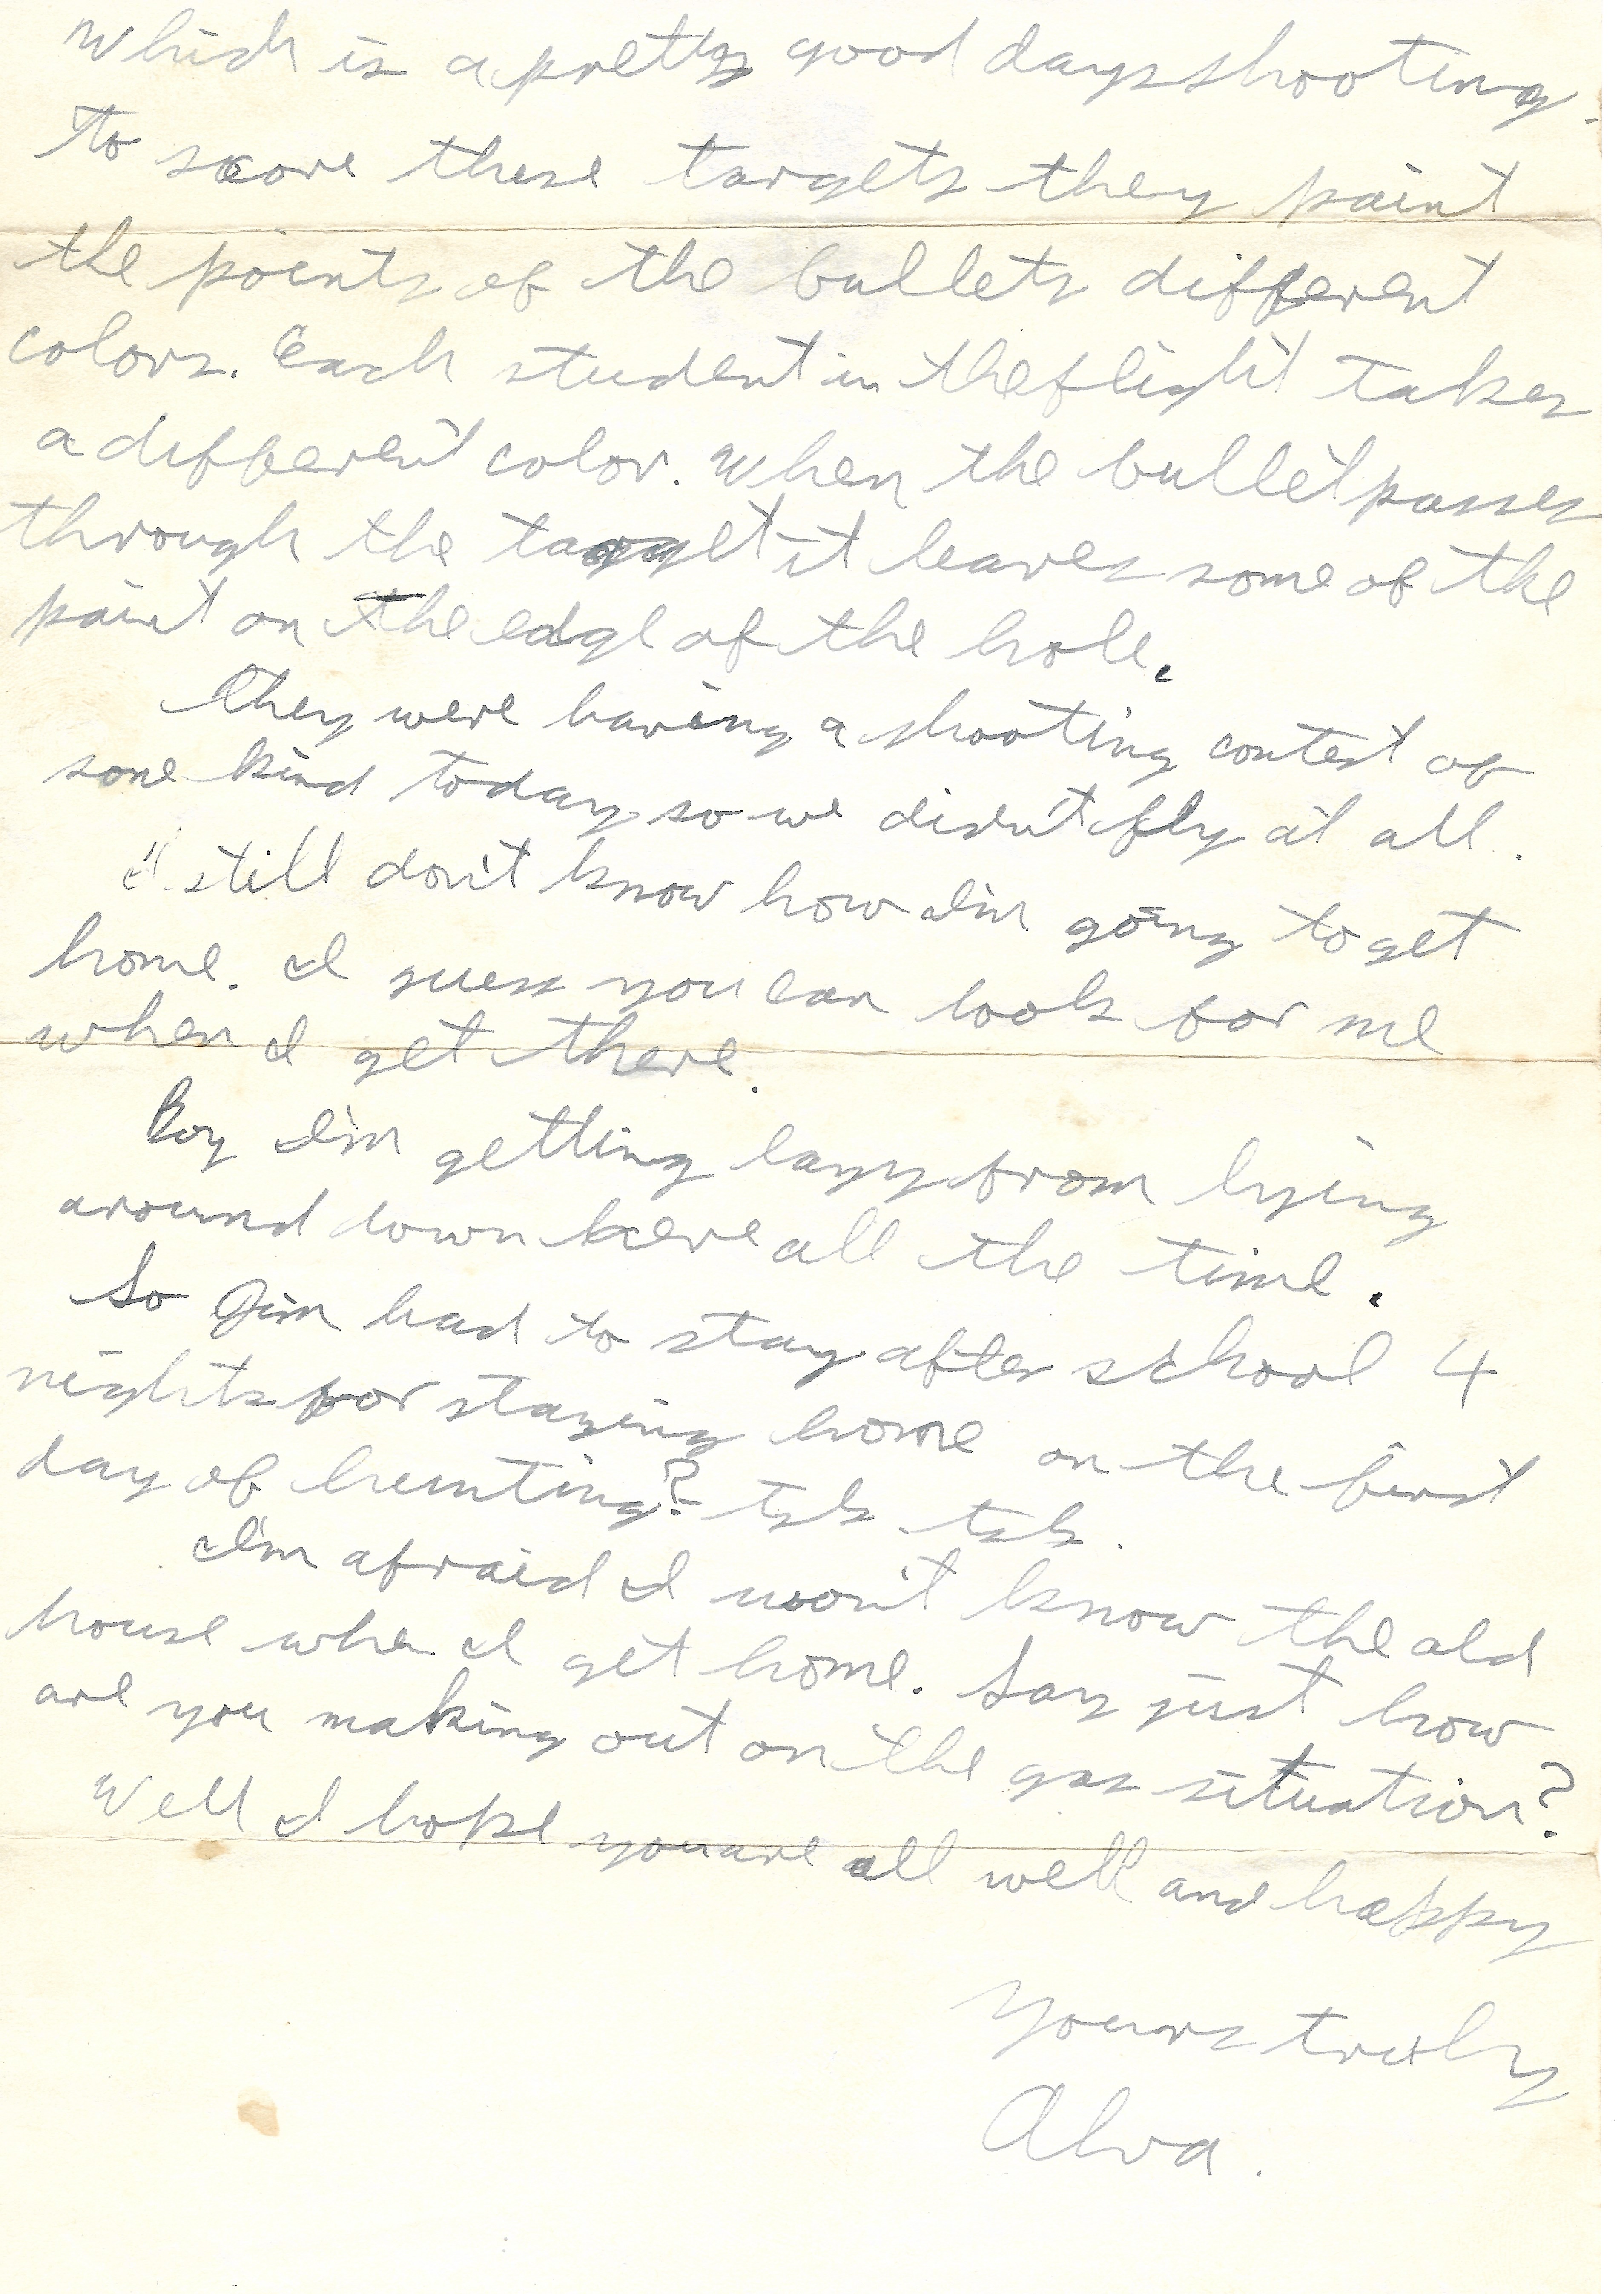 Which is a pretty good days shooting.
To score these targets they paint
the points of the bullets different
colors. Each student in the flight takes
a different color. When the bullet passes
through the target it leaves some of the
paint on the edge of the hole.
They were having a shooting contest of
some kind today so we didn't fly at all.
I still don't know how I'm going to get
home. I guess you can look for me
when I get there.
Boy I'm getting lazy from lying
around down here all the time.
So Jim had to stay after school 4
nights for staying home on the first
day of hunting? Tsk tsk.
I'm afraid I won't know the old
house when I get home. Say just how
are you making out on the gas situation?
Well I hope you are all well and happy
Yours truly
Alva.